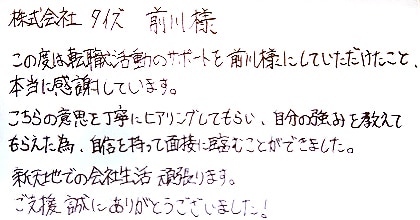 株式会社 タイズ 前川様
この度は転職活動のサポートを前川様にしていただけたこと、
本当に感謝しています。
こちらの意思を丁寧にヒアリングしてもらい、自分の強みを教えて
もらえた為、自信を持って面接に臨むことができました。
新天地での会社生活 頑張ります。
ご支援 誠にありがとうございました!